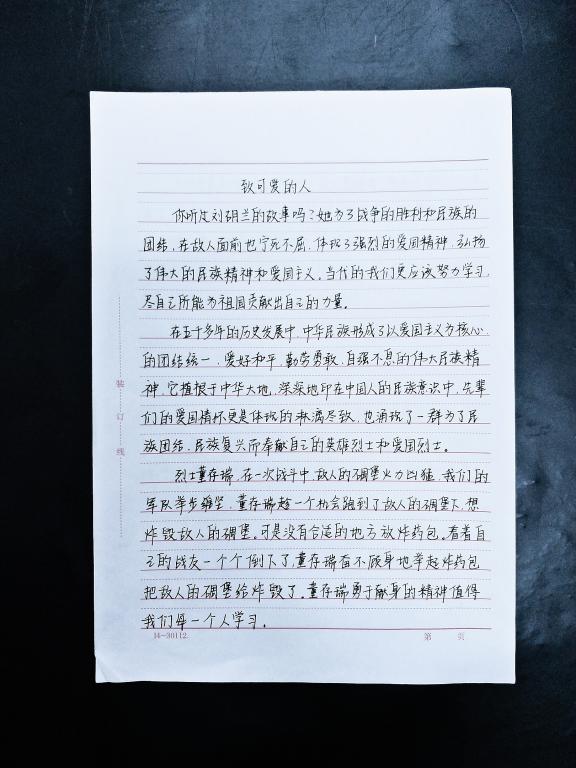 致可爱的人
你听过刘胡兰的故事吗？她为了战争的胜利和民族的
团结，在敌人面前也宁死不屈，体现了强烈的爱国精神，弘扬
了伟大的民族精神和爱国主义。当代的我们更应该努力学习，
尽自己所能为祖国贡献出自己的力量。
在五千多年的历史发展中，中华民族形成了以爱国主义为核心
的团结统一，爱好和平，勤劳勇敢，自强不息的伟大民族精
神，它植根于中华大地，深深地印在中国人的民族意识中，先辈
们的爱国情怀更是体现的淋漓尽致，也涌现了一群为了民
族团结，民族复兴而奉献自己的英雄烈士和爱国烈士。
烈士董存瑞，在一次战斗中，敌人的碉堡火力凶猛，我们的
军队举步维坚，董存瑞趁一个机会跑到了敌人的碉堡下，想
炸毁敌人的碉堡。可是没有合适的地方放炸药包。看着自
己的战友一个个倒下了，董存瑞奋不顾身地举起炸药包
把敌人的碉堡给炸毁了。董存瑞勇于献身的精神值得
我们每一个人学习。
装订线
14-30112
第 页